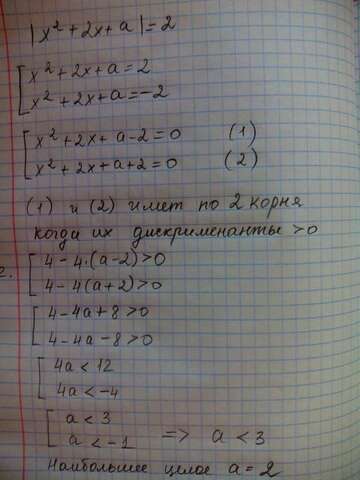 |x² + 2x + a| = 2
[ x² + 2x + a = 2
x² + 2x + a = -2
[ x² + 2x + a - 2 = 0 (1)
x² + 2x + a + 2 = 0 (2)
(1) и (2) имет по 2 корня
когда их дискрименанты > 0
2. [ 4 - 4·(a-2) > 0
4 - 4(a+2) > 0
[ 4 - 4a + 8 > 0
4 - 4a - 8 > 0
[ 4a < 12
4a < -4
[ a < 3
a < -1 => a < 3
Наибольшее целое a = 2